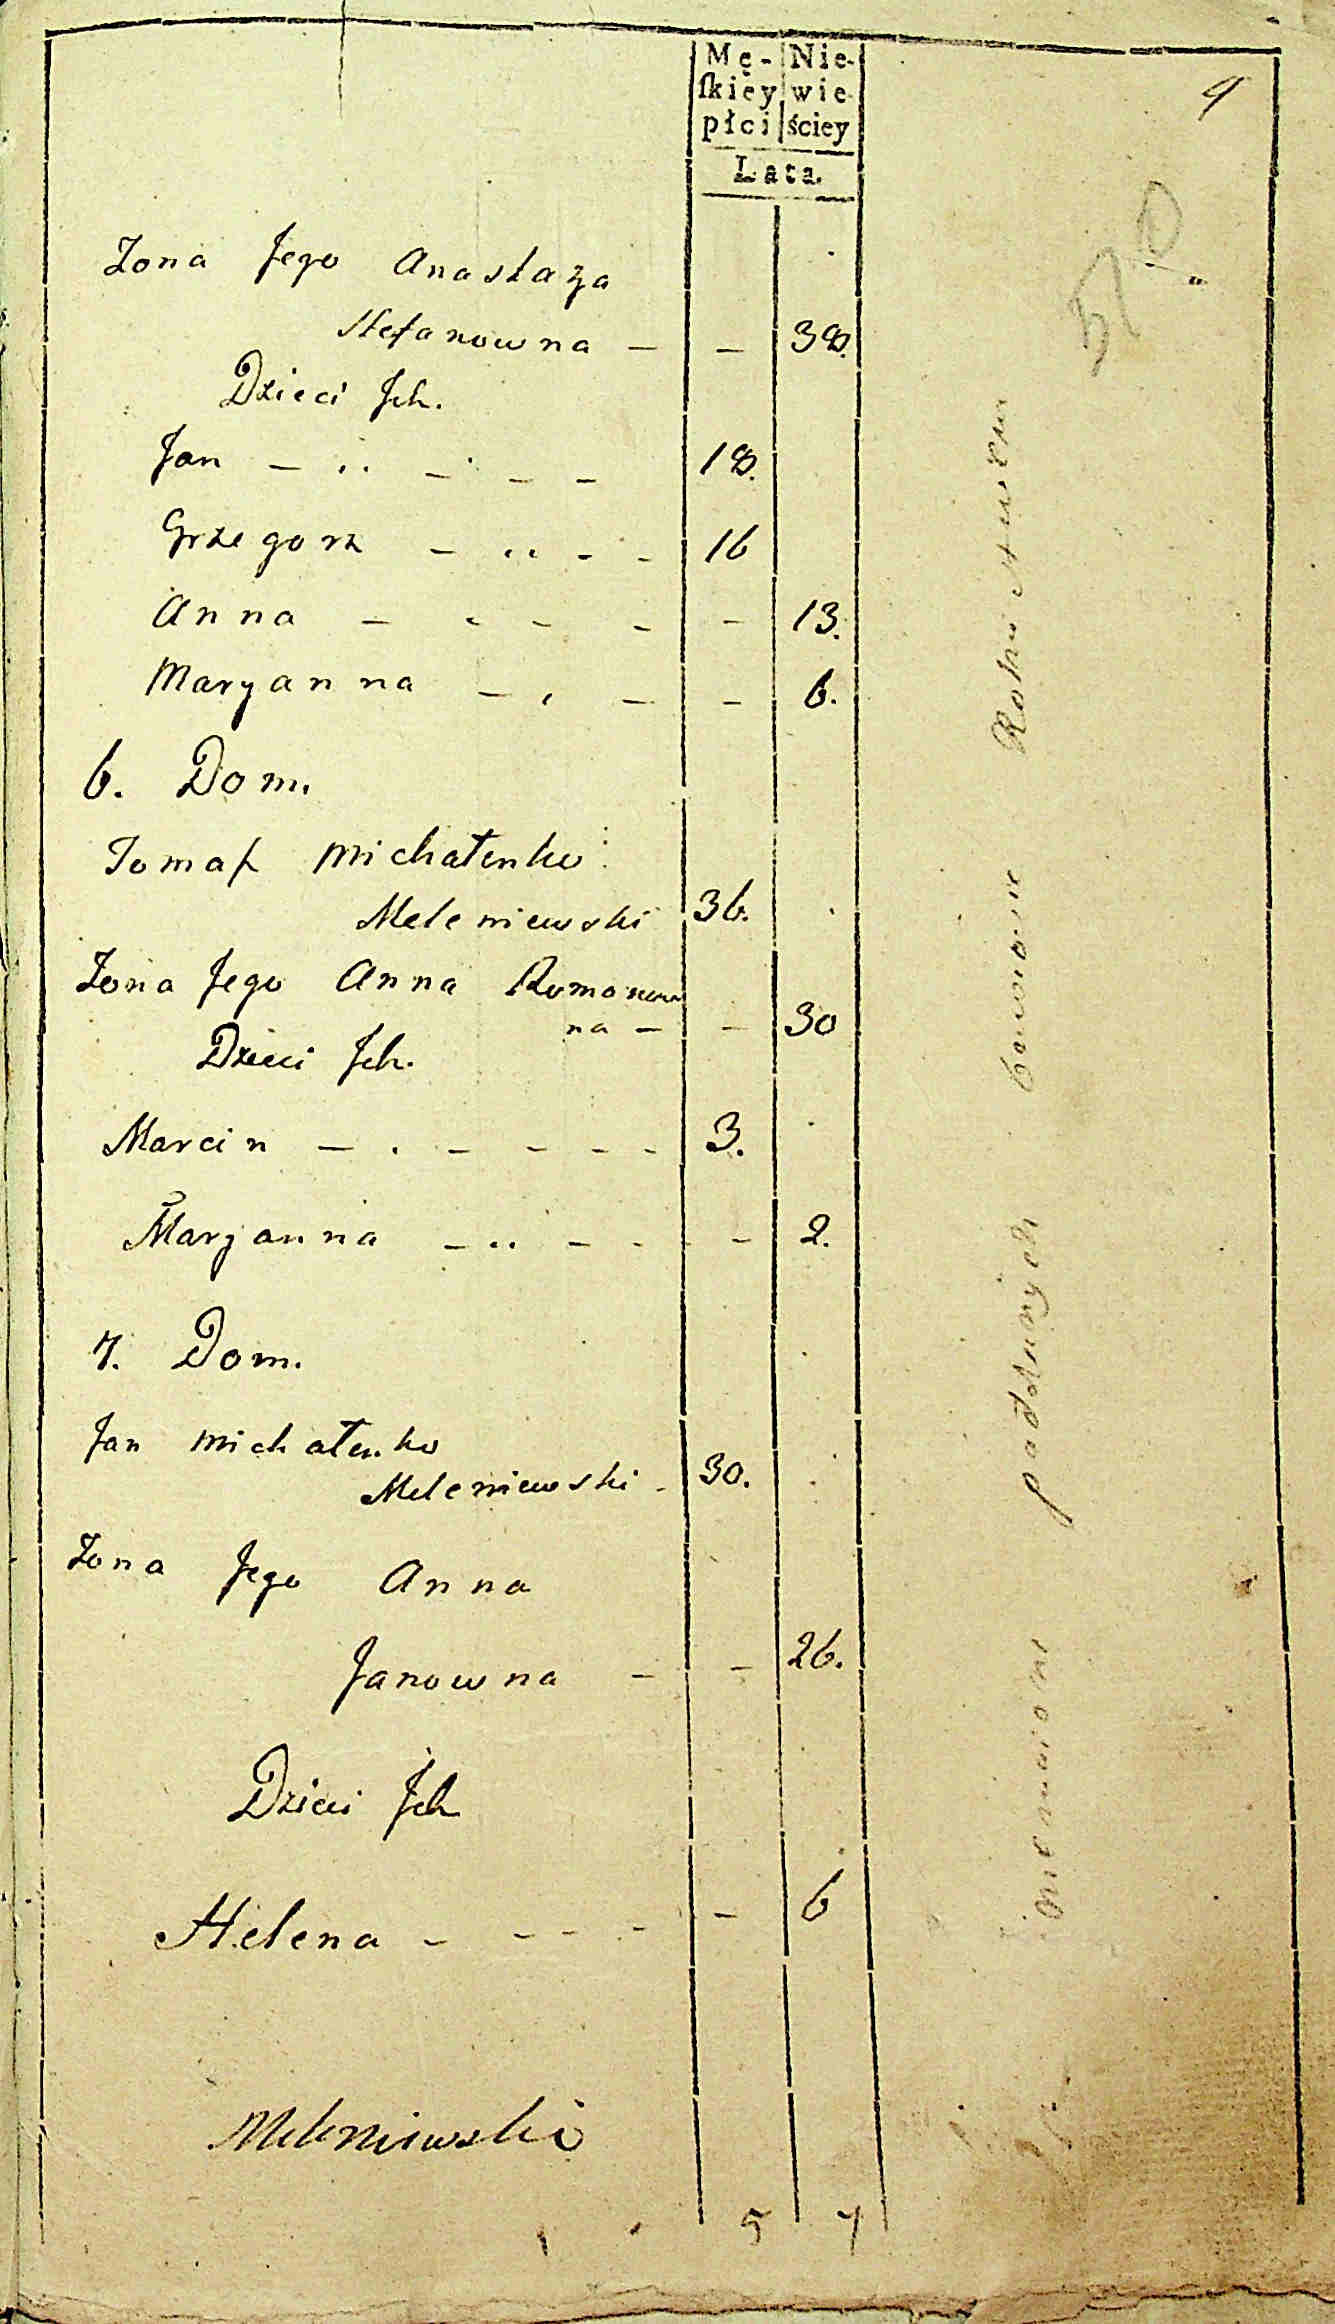 Mę- Nie-
ſkiey wie-
płci ściey
Lata.
9
Żona Jego Anastazya
Stefanowna — — 38.
Dzieci Jch.
Jan — 18.
Grzegorz — 16
Anna — — 13.
Maryanna — — 6.
6. Dom.
Tomaſz Michałenko
Meleniewski 36.
Żona Jego Anna Romanow
na — — 30
Dzieci Jch.
Marcin — 3.
Maryanna — — 2.
7. Dom.
Jan Michałenko
Meleniewski - 30.
Żona Jego Anna
Janowna — — 26.
Dzieci Jch
Helena — — 6
Meleniewski
5 7